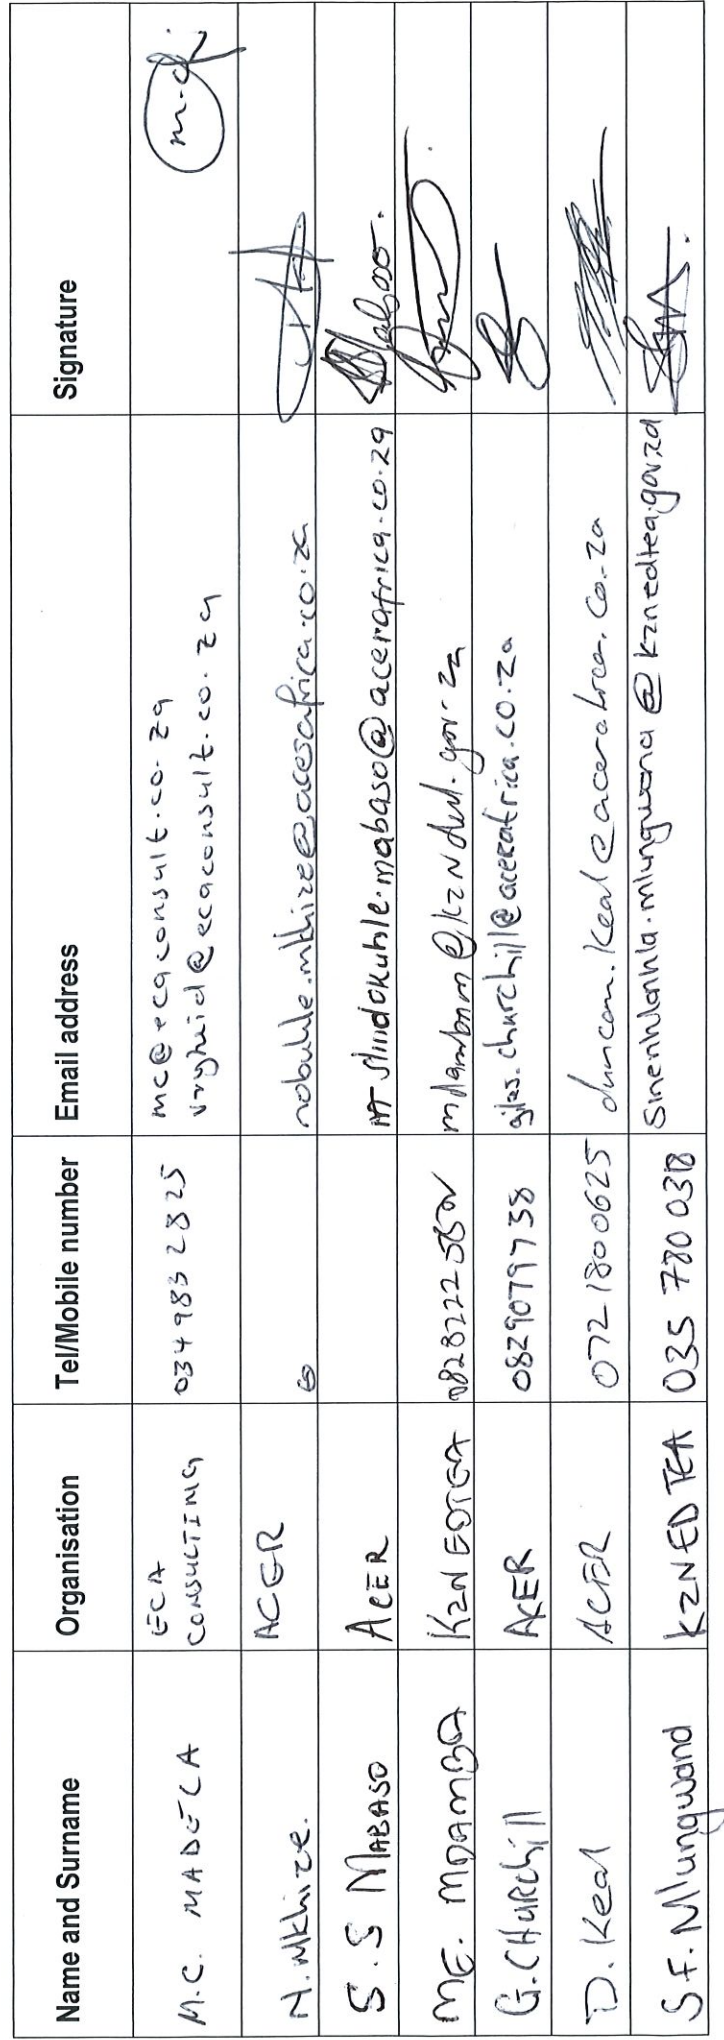 Name and Surname Organisation Tel/Mobile number Email address Signature
M.C. MADELA ECA CONSULTING 034 983 2825 mc@ecaconsult.co.za vryheid@ecaconsult.co.za
N. Mkhize. ACER nobuhle.mkhize@acerafrica.co.za
S.S MABASO ACER sindokuhle.mabaso@acerafrica.co.za Mabaso.
ME. MDAMBA KZN EDTEA
G. CHURCHill ACER 0829079738 giles.churchill@acerafrica.co.za
D. Keal ACER 072 1800625 duncan.keal@acerafrica.co.za
S.F. Mlungwana KZN EDTEA 035 780 0313